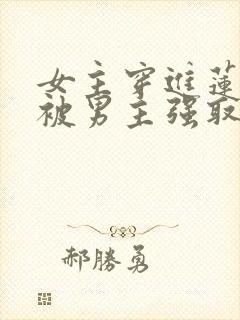 女主穿進蓮
被男主强取
郝勝勇